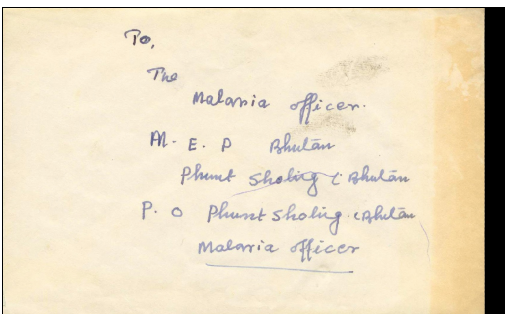 To,
The
Malaria officer.
M. E. P Bhutan
Phunt Sholing (Bhutan
P. O Phunt Sholing (Bhutan
Malaria officer